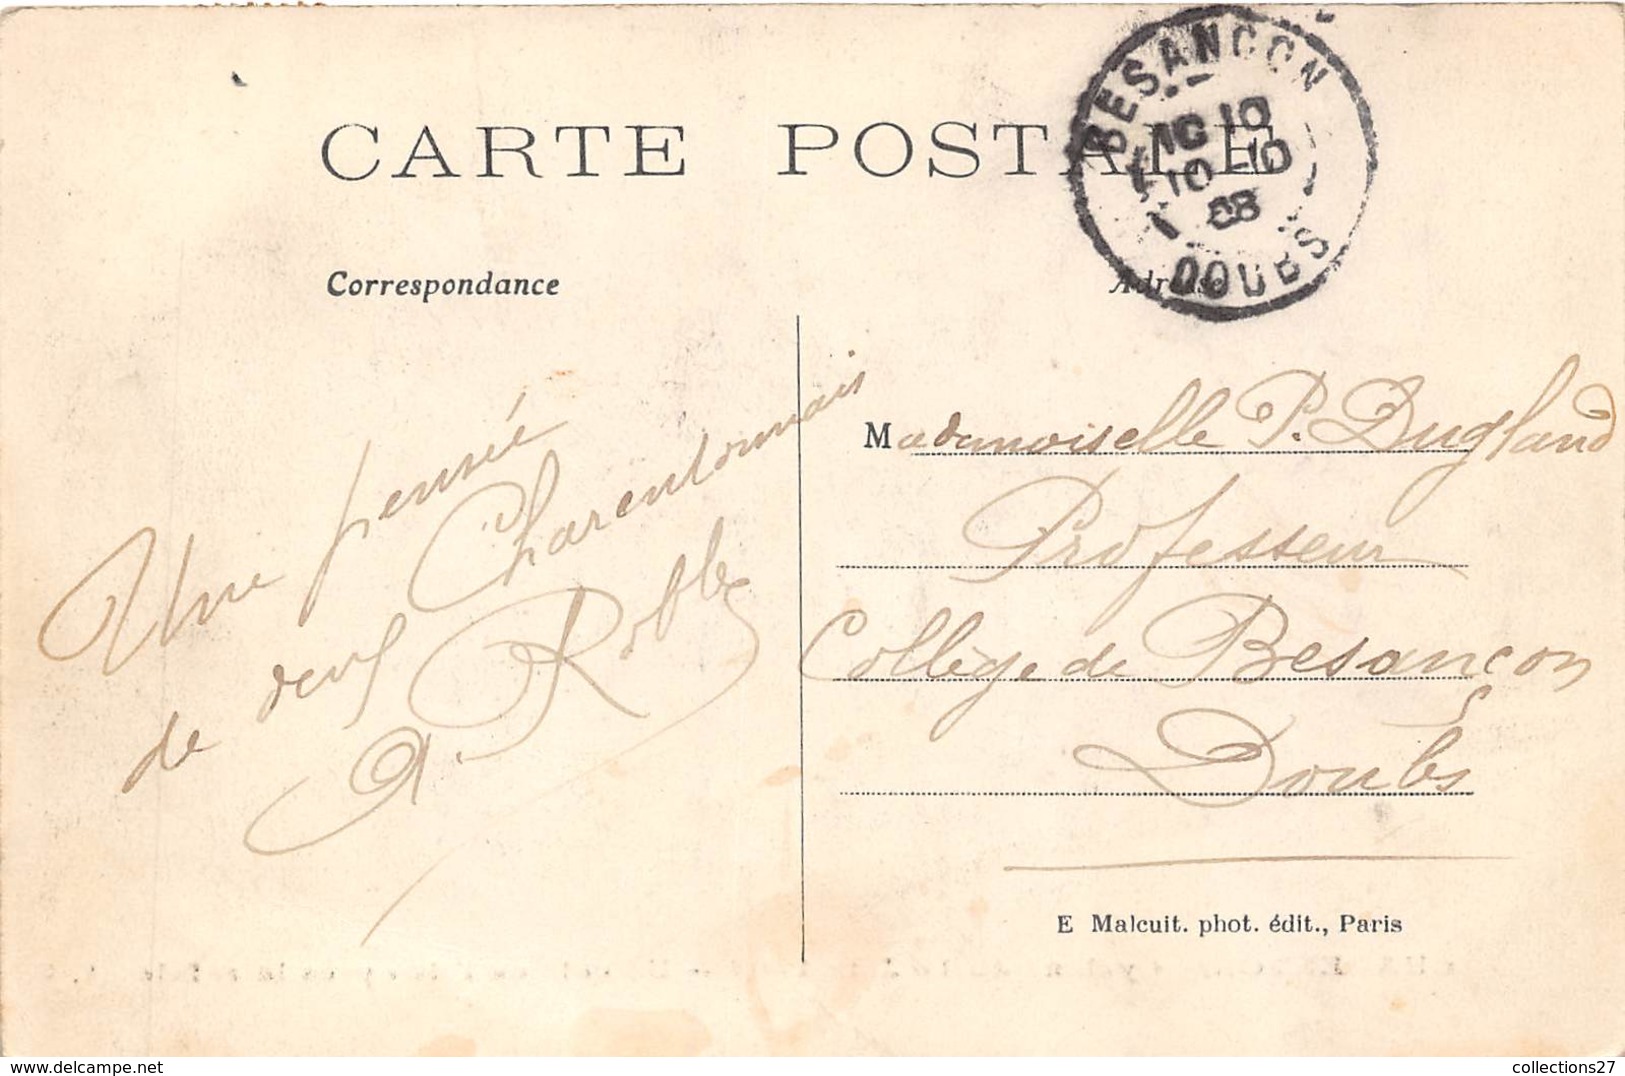 CARTE POSTALE
BESANCON
10
10-10
08
DOUBS
Correspondance
Adresse
Une pensée
de deux Charentonnais
A. Robbe
Mademoiselle P. Dugland
Professeur
Collège de Besançon
Doubs
E Malcuit. phot. édit., Paris
collections27